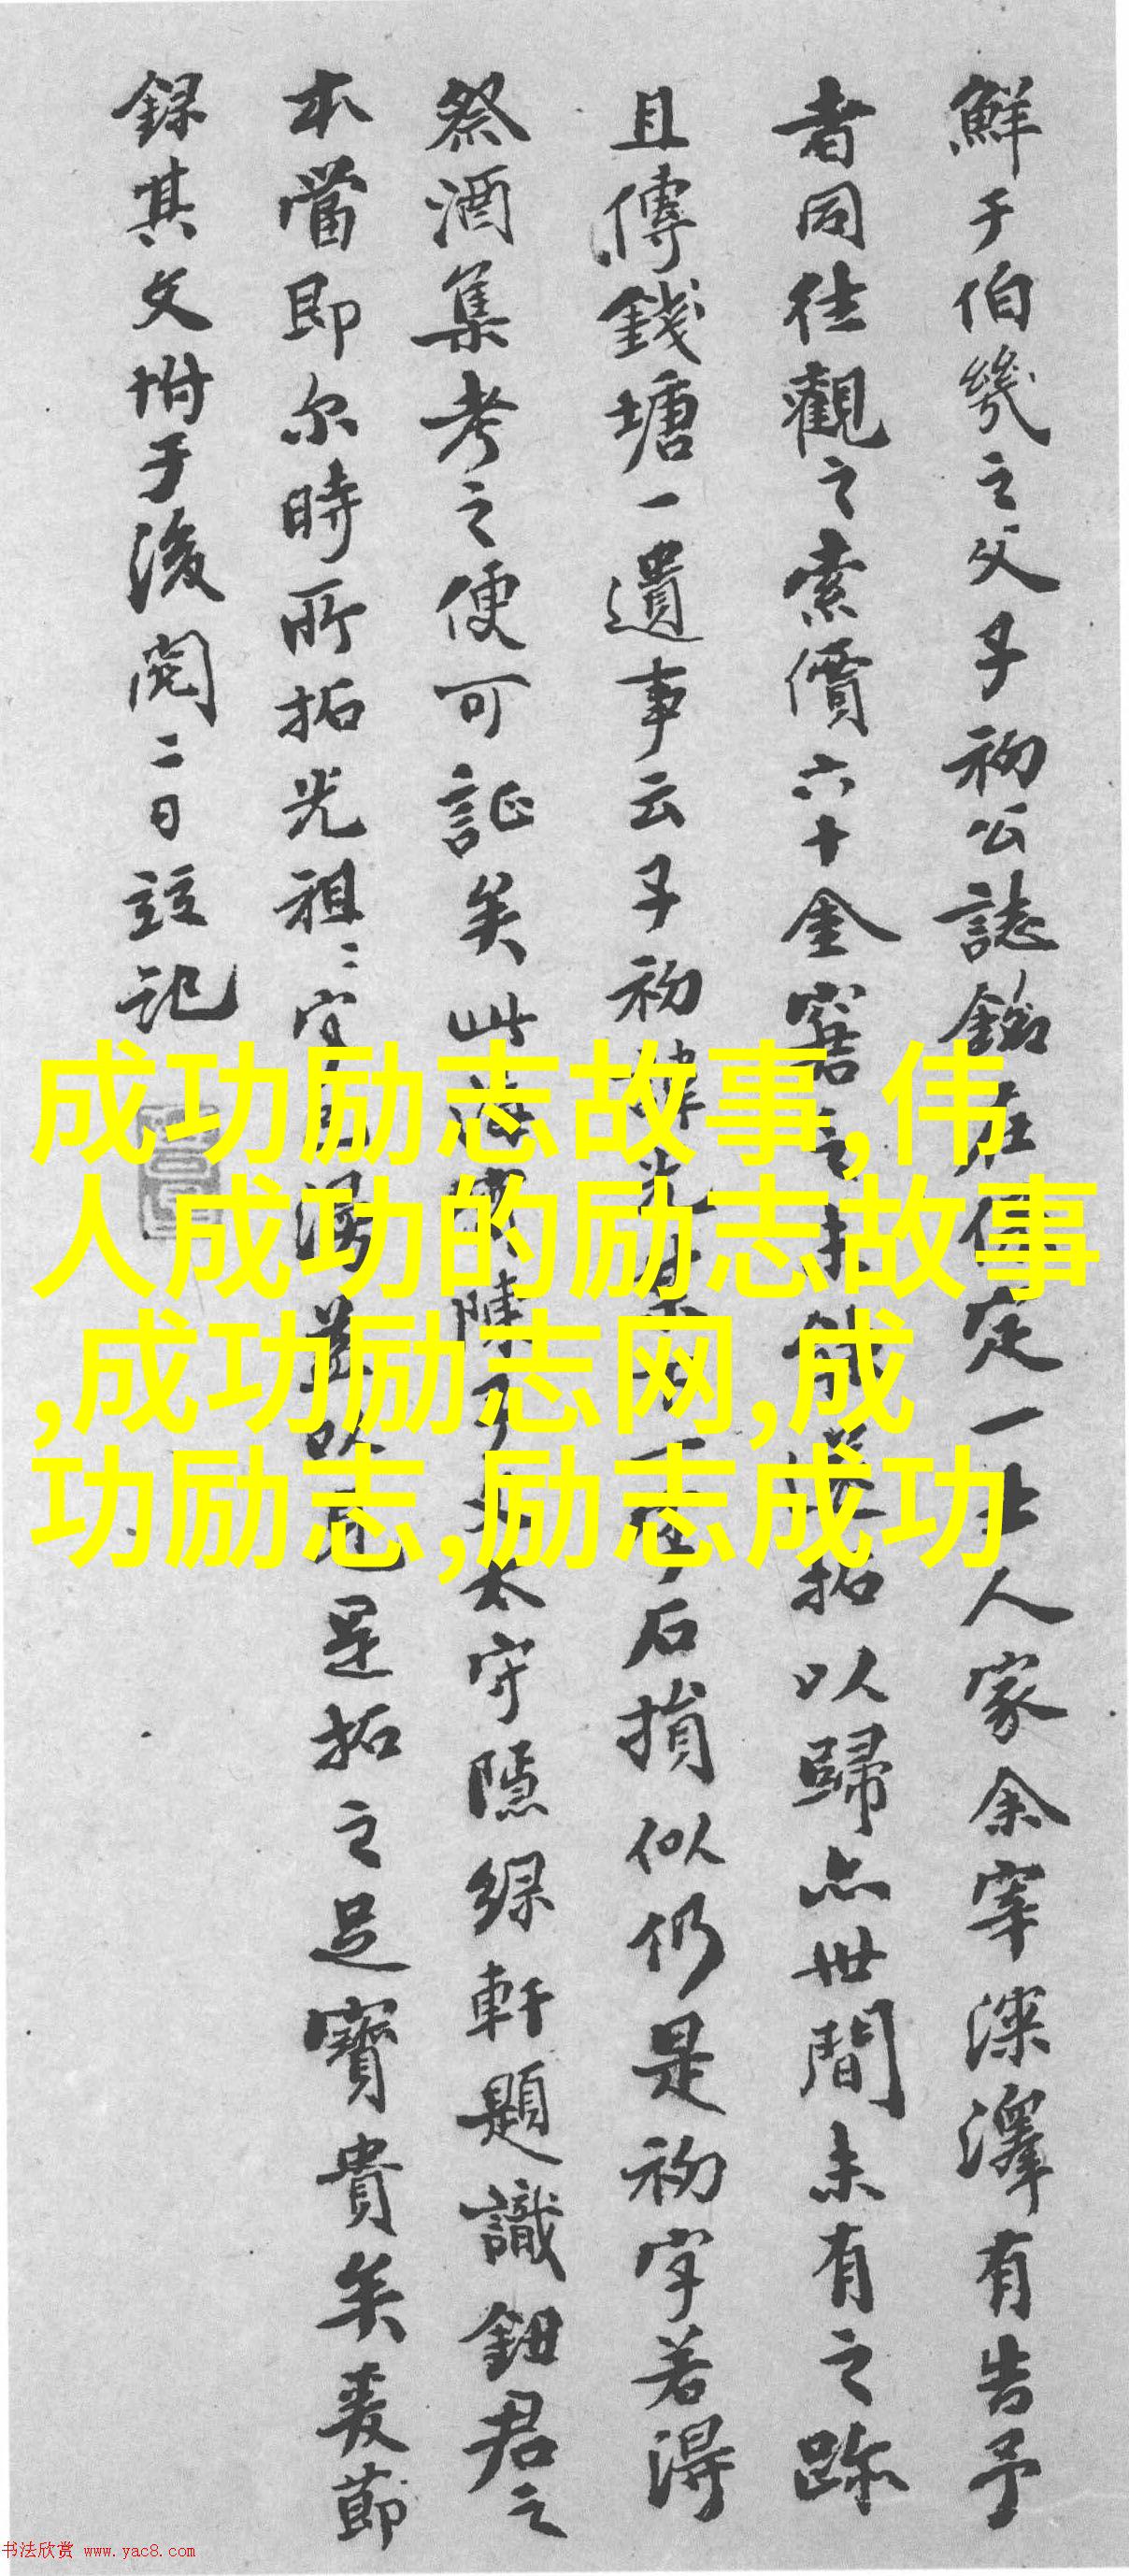 鮮于伯幾之父子初公誌銘在保定一士人家余宰深澤有告予
者同往觀之索價六十金窘之未能僅拓以歸亦世間未有之跡
且傳錢塘一遺事云子初諱光
石損似仍是初字若得
祭酒集考之便可証矣此
陳
太守隱綠軒題識鈕君之
本當即尔時所拓光祖
是拓之足寶貴矣爰節
錄其文附于後閱二日
記
成功励志故事,伟
人成功的励志故事
,成功励志网,成
功励志,励志成功
书法欣赏 www.yac8.com